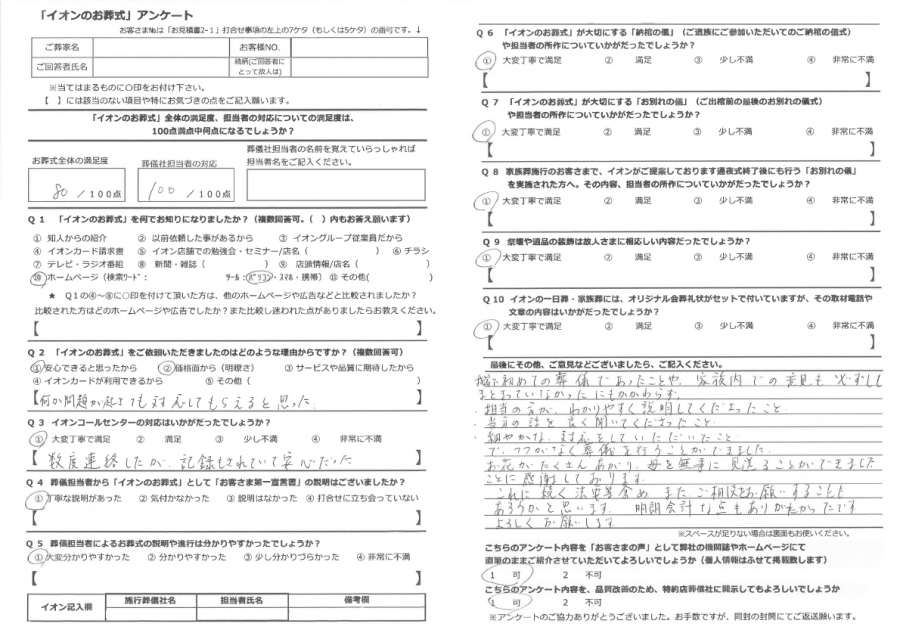 「イオンのお葬式」アンケート
お客さま№は「お見積書2-1」打合せ事項の左上の7ケタ（もしくは5ケタ）の番号です。↓
ご葬家名
お客様NO.
ご回答者氏名
続柄(ご回答者にとって故人は)
※当てはまるものに〇印をお付け下さい。
【 】には該当のない項目や特にお気づきの点をご記入願います。
「イオンのお葬式」全体の満足度、担当者の対応についての満足度は、
100点満点中何点になるでしょうか？
お葬式全体の満足度
葬儀社担当者の対応
葬儀社担当者の名前を覚えていらっしゃれば
担当者名をご記入ください。
80 / 100点
100 / 100点
Q 1 「イオンのお葬式」を何でお知りになりましたか？（複数回答可。（ ）内もお答え願います）
① 知人からの紹介 ② 以前依頼した事があるから ③ イオングループ従業員だから
④ イオンカード請求書 ⑤ イオン店舗での勉強会・セミナー/店名（ ） ⑥ チラシ
⑦ テレビ・ラジオ番組 ⑧ 新聞・雑誌（ ） ⑨ 店頭情報/店名（ ）
⑩ ホームページ（検索ﾜｰﾄﾞ： ﾂｰﾙ：パソコン・ｽﾏﾎ・携帯） ⑪ その他( )
★ Q1の④～⑧に〇印を付けて頂いた方は、他のホームページや広告などと比較されましたか？
比較された方はどのホームページや広告でしたか？また比較し迷われた点がありましたらお教えください。
【 】
Q 2 「イオンのお葬式」をご依頼いただきましたのはどのような理由からですか？（複数回答可）
①安心できると思ったから ②価格面から（明瞭さ） ③ サービスや品質に期待したから
④ イオンカードが利用できるから ⑤ その他（ ）
【何か問題が起きても対応してもらえると思った 】
Q 3 イオンコールセンターの対応はいかがだったでしょうか？
① 大変丁寧で満足 ② 満足 ③ 少し不満 ④ 非常に不満
【 数度連絡したが、記録もされていて安心だった 】
Q 4 葬儀担当者から「イオンのお葬式」として「お客さま第一宣言書」の説明はございましたか？
①丁寧な説明があった ② 気付かなかった ③ 説明はなかった ④ 打合せに立ち会っていない
【 】
Q 5 葬儀担当者によるお葬式の説明や進行は分かりやすかったでしょうか？
①大変分かりやすかった ② 分かりやすかった ③ 少し分かりづらかった ④ 非常に不満
【 】
イオン記入欄
施行葬儀社名
担当者氏名
備考欄
Q 6 「イオンのお葬式」が大切にする「納棺の儀」（ご遺族にご参加いただいてのご納棺の儀式）
や担当者の所作についていかがだったでしょうか？
① 大変丁寧で満足 ② 満足 ③ 少し不満 ④ 非常に不満
【 】
Q 7 「イオンのお葬式」が大切にする「お別れの儀」（ご出棺前の最後のお別れの儀式）
や担当者の所作についていかがだったでしょうか？
① 大変丁寧で満足 ② 満足 ③ 少し不満 ④ 非常に不満
【 】
Q 8 家族葬施行のお客さまで、イオンがご提案しております通夜式終了後にも行う「お別れの儀」
を実施された方へ。その内容、担当者の所作についていかがだったでしょうか？
① 大変丁寧で満足 ② 満足 ③ 少し不満 ④ 非常に不満
【 】
Q 9 祭壇や遺品の装飾は故人さまに相応しい内容だったでしょうか？
① 大変丁寧で満足 ② 満足 ③ 少し不満 ④ 非常に不満
【 】
Q 10 イオンの一日葬・家族葬には、オリジナル会葬礼状がセットで付いていますが、その取材電話や
文章の内容はいかがだったでしょうか？
① 大変丁寧で満足 ② 満足 ③ 少し不満 ④ 非常に不満
【 】
最後にその他、ご意見などございましたら、ご記入ください。
初めての葬儀であったことや、家族内での意見も必ずしも
まとまっていなかったにもかかわらず、
・担当の方が、わかりやすく説明してくださったこと
・当方の話を良く聞いてくださったこと
・細やかな、対応をしていただいたこと
で、つつがなく葬儀を行うことができました。
お花がたくさんあがり、母を無事に見送ることができました
ことに感謝しております。
これに続く法要等含め、またご相談をお願いすることも
あろうかと思います。 明朗会計な点もありがたかったです
よろしくお願いします
※スペースが足りない場合は裏面もお使いください。
こちらのアンケート内容を「お客さまの声」として弊社の機関誌やホームページにて
直筆のままご紹介させていただいてよろしいでしょうか（個人情報はふせて掲載致します）
1 可 2 不可
こちらのアンケート内容を、品質改善のため、特約店葬儀社に開示してもよろしいでしょうか
1 可 2 不可
※アンケートのご協力ありがとうございました。お手数ですが、同封の封筒にてご返送願います。